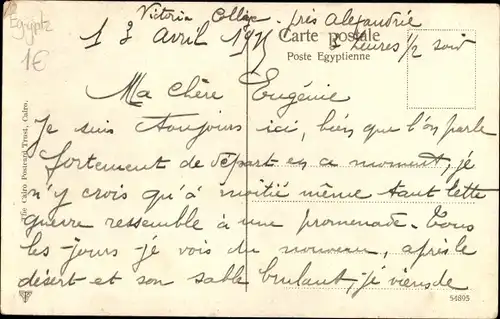 Victoria College près Alexandrie
13 Avril 1915
2 heures 1/2 soir
Egypte
1€
Carte postale
Poste Egyptienne
Ma Chère Eugénie
Je suis toujours ici, bien que l'on parle
fortement de départ en ce moment, je
n'y crois qu'à moitié même tant cette
guerre ressemble à une promenade. Tous
les jours je vois du nouveau, après le
désert et son sable brulant, je viens de
The Cairo Postcard Trust, Cairo.
54895